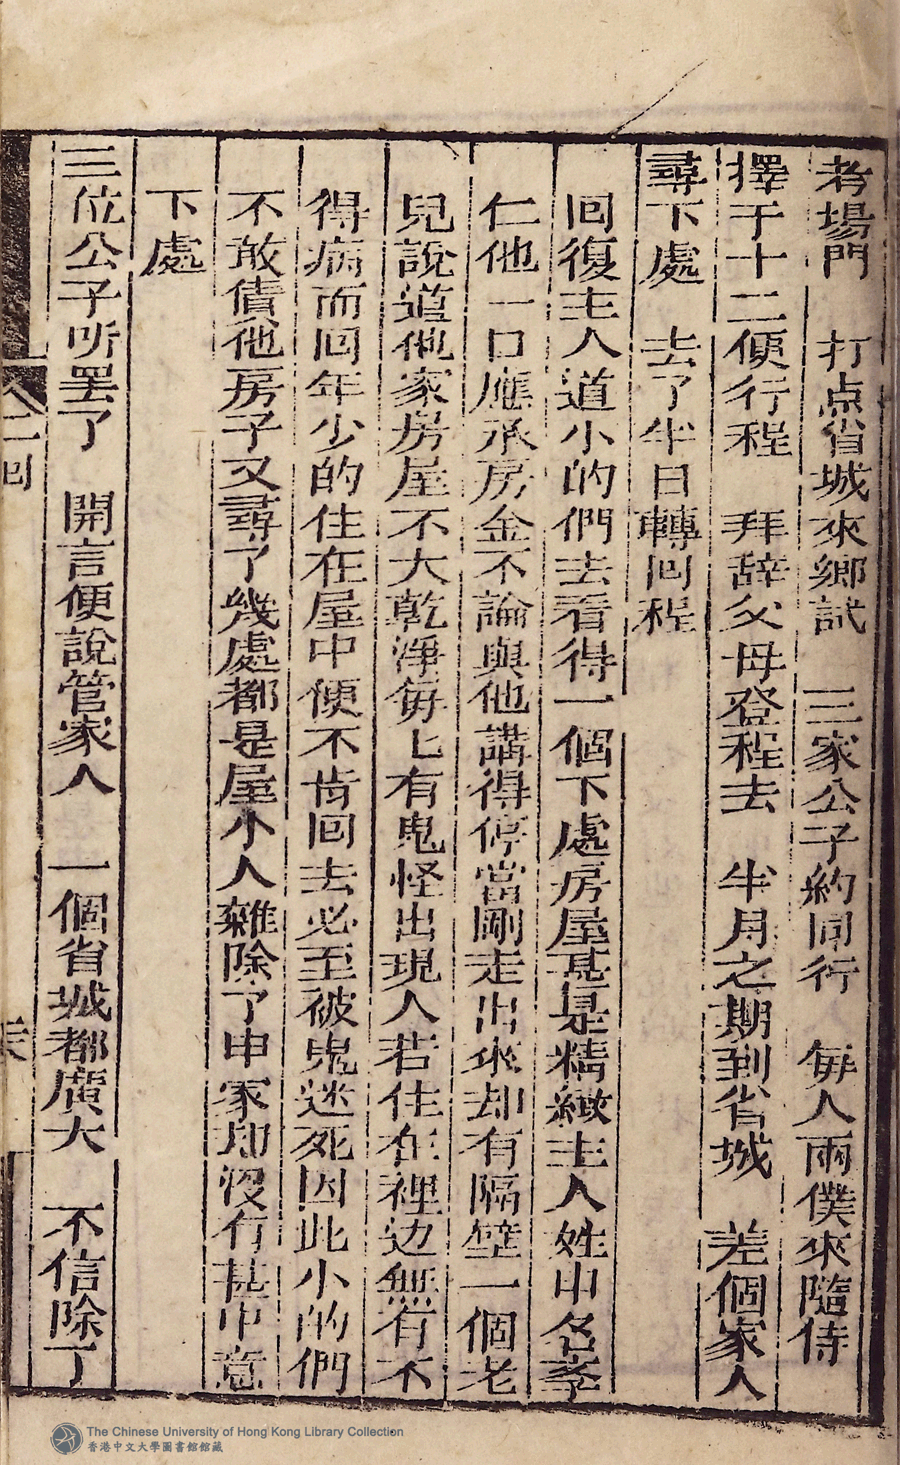 考場門　打点省城來鄉試　三家公子約同行　每人兩僕來隨侍
擇于十二便行程　拜辞父母登程去　半月之期到省城　差個家人
尋下處　去了半日轉回程
回復主人道小的們去看得一個下處房屋甚是精緻主人姓申名孝
仁他一口應承房金不論與他講得停當剛走出來却有隔壁一個老
兒說道他家房屋不大乾淨每匕有鬼怪出現人若住在裡边無有不
得病而回年少的住在屋中便不肯回去必至被鬼迷死因此小的們
不敢借他房子又尋了幾處都是屋小人雜除了申家却沒有甚中意
下處
三位公子听罢了　開言便說管家人　一個省城都廣大　不信除了
二回
The Chinese University of Hong Kong Library Collection
香港中文大學圖書館館藏